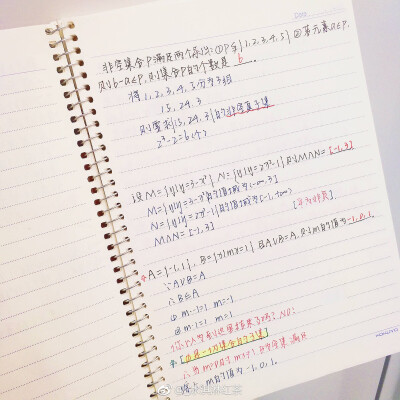 非空集合P满足两个条件:①P⊊{1,2,3,4,5} ②若元素a∈P,
则6-a∈P,则集合P的个数是 6 .
将1,2,3,4,5分为3组
15,24,3
则面到15,24,3}的非空真子集
2³-2=6(个)
设M={y|y=3-x²}, N={y|y=2x²-1}则M∩N= [-1,3]
M={y|y=3-x²的值域为(-∞,3]
N={y|y=2x²-1}的值域为[-1,+∞)
M∩N=[-1,3]
A={-1,1}, B={x|mx=1} 且A∪B=A,则m的值为-1,0,1,
∵A∪B=A
∴B⊆A
① m·-1=1 m=-1
② m·1=1 m=1
NO!
∴m的值为-1,0,1.
KOKUYO